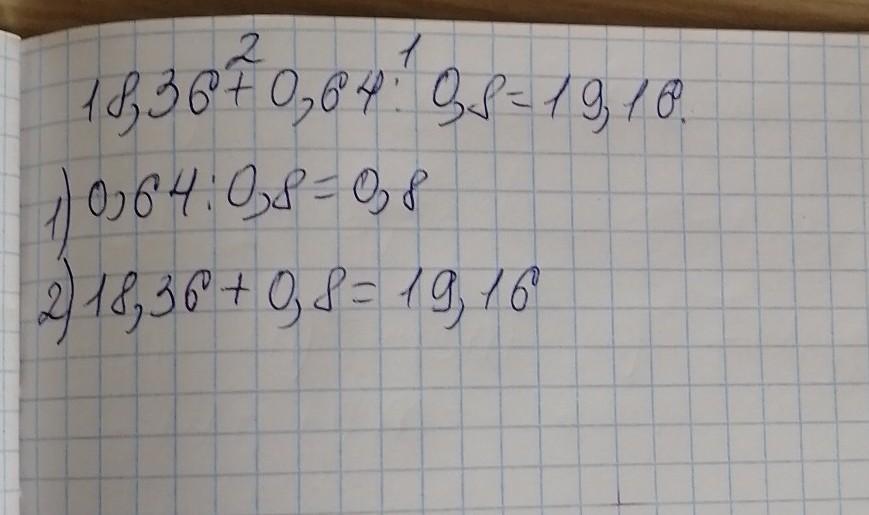 2 1
18,36+0,64:0,8=19,16.
1) 0,64:0,8=0,8
2) 18,36+0,8=19,16